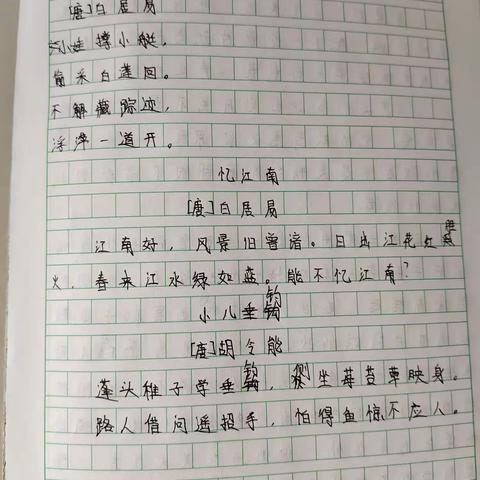 [唐]白居易
小娃撑小艇，
偷采白莲回。
不解藏踪迹，
浮萍一道开。
忆江南
[唐]白居易
江南好，风景旧曾谙。日出江花红胜
火，春来江水绿如蓝。能不忆江南？
小儿垂钓
[唐]胡令能
蓬头稚子学垂钓，侧坐莓苔草映身。
路人借问遥招手，怕得鱼惊不应人。